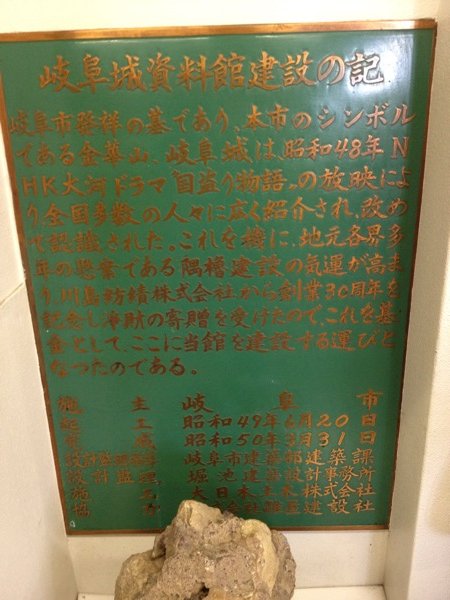 岐阜城資料館建設の記
岐阜市発祥の基であり、本市のシンボル
である金華山、岐阜城は、昭和48年N
HK大河ドラマ"国盗り物語"の放映によ
り全国多数の人々に広く紹介され、改め
て認識された。これを機に、地元各界多
年の懸案である隅櫓建設の気運が高ま
り、川島紡績株式会社から創業30周年を
記念し浄財の寄贈を受けたので、これを基
金として、ここに当館を建設する運びと
なったのである。
施主 岐阜市
起工 昭和49年6月20日
完成 昭和50年3月31日
設計監理指導 岐阜市建築部建築課
設計監理 堀池建築設計事務所
施工 大日本土木株式会社
建設社